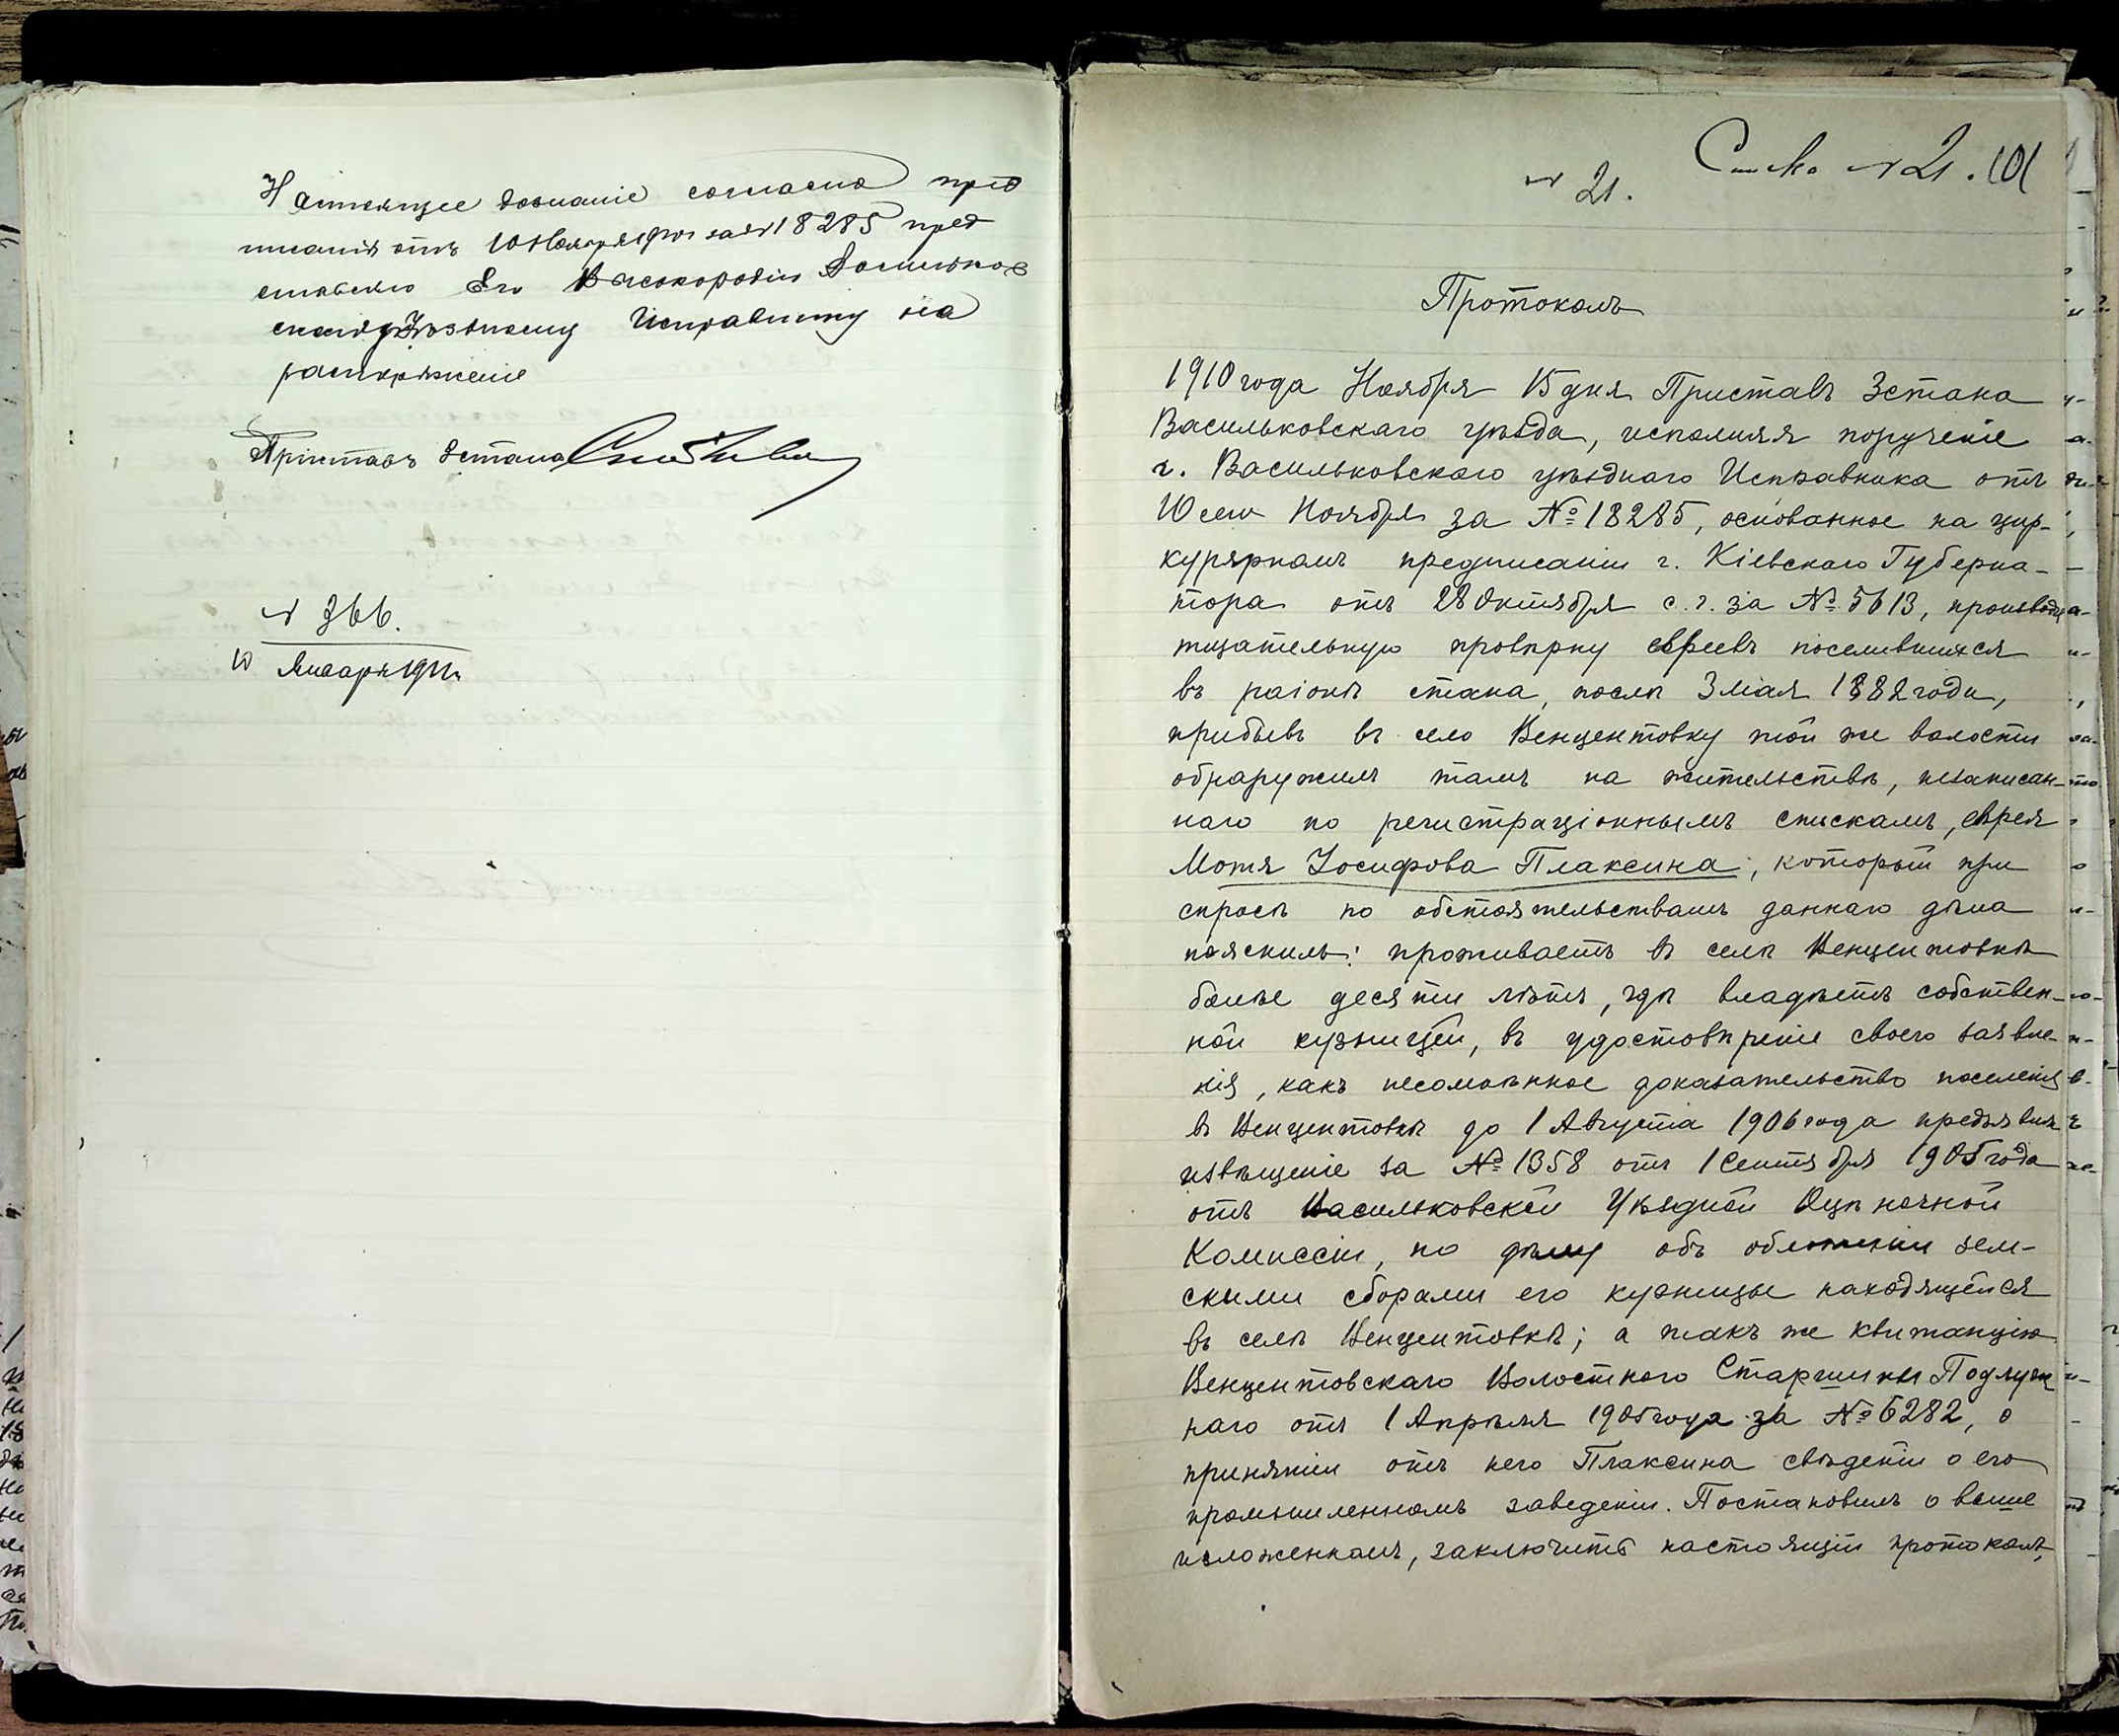 Настоящее дознаніе согласно пред
писанія отъ 10 Ноября 1910 г за № 18285 пред
ставляю Его Высокородію Васильков
скому Уѣздному Исправнику на
распоряженіе
Приставъ 3 стана
№ 366.
10 Января 1911 г.
№ 21. 101
№ 21.
Протоколъ
1910 года Ноября 15 дня Приставъ 3 стана
Васильковскаго уѣзда, исполняя порученіе
г. Васильковскаго уѣзднаго Исправника отъ
10 сего Ноября за № 18285, основанное на цир-
кулярномъ предписаніи г. Кіевскаго Губерна-
тора отъ 28 Октября с. г. за № 5613, производя
тщательную провѣрку евреевъ поселившихся
въ раіонѣ стана, послѣ 3 мая 1882 года,
прибывъ въ село Венцентовку той же волости
обнаружилъ тамъ на жительствѣ, незаписан-
наго по регистраціоннымъ спискамъ, еврея
Мотя Іосифова Плаксина, который при
спросѣ по обстоятельствамъ даннаго дѣла
пояснилъ: проживаетъ въ селѣ Венцентовкѣ
болѣе десяти лѣтъ, гдѣ владѣетъ собствен-
ной кузницей, въ удостовѣреніе своего заявле-
нія, какъ несомнѣнное доказательство поселенія
въ Венцентовкѣ до 1 Августа 1906 года предъявилъ
извѣщеніе за № 1358 отъ 1 Сентября 1905 года
отъ Васильковской Уѣздной Оцѣночной
Комиссіи, по дѣлу объ обложеніи зем-
скими сборами его кузницы находящейся
въ селѣ Венцентовкѣ; а такъ же квитанцію
Венцентовскаго Волостного Старшины Подлуж
наго отъ 1 Апрѣля 1905 года за № 6282, о
принятіи отъ него Плаксина свѣденій о его
промышленномъ заведеніи. Постановилъ о выше
изложенномъ, заключить настоящій протоколъ,